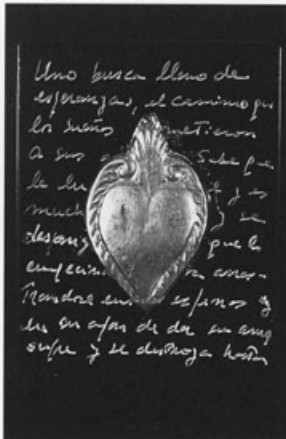 Uno busca lleno de
esperanzas, el camino que
los sueños metieron
a sus Sabe que
la lu y es
much y se
desang que lo
empecin arras-
trandose entre espinos y
en su afan de dar su amor
sufre y se destroza hasta